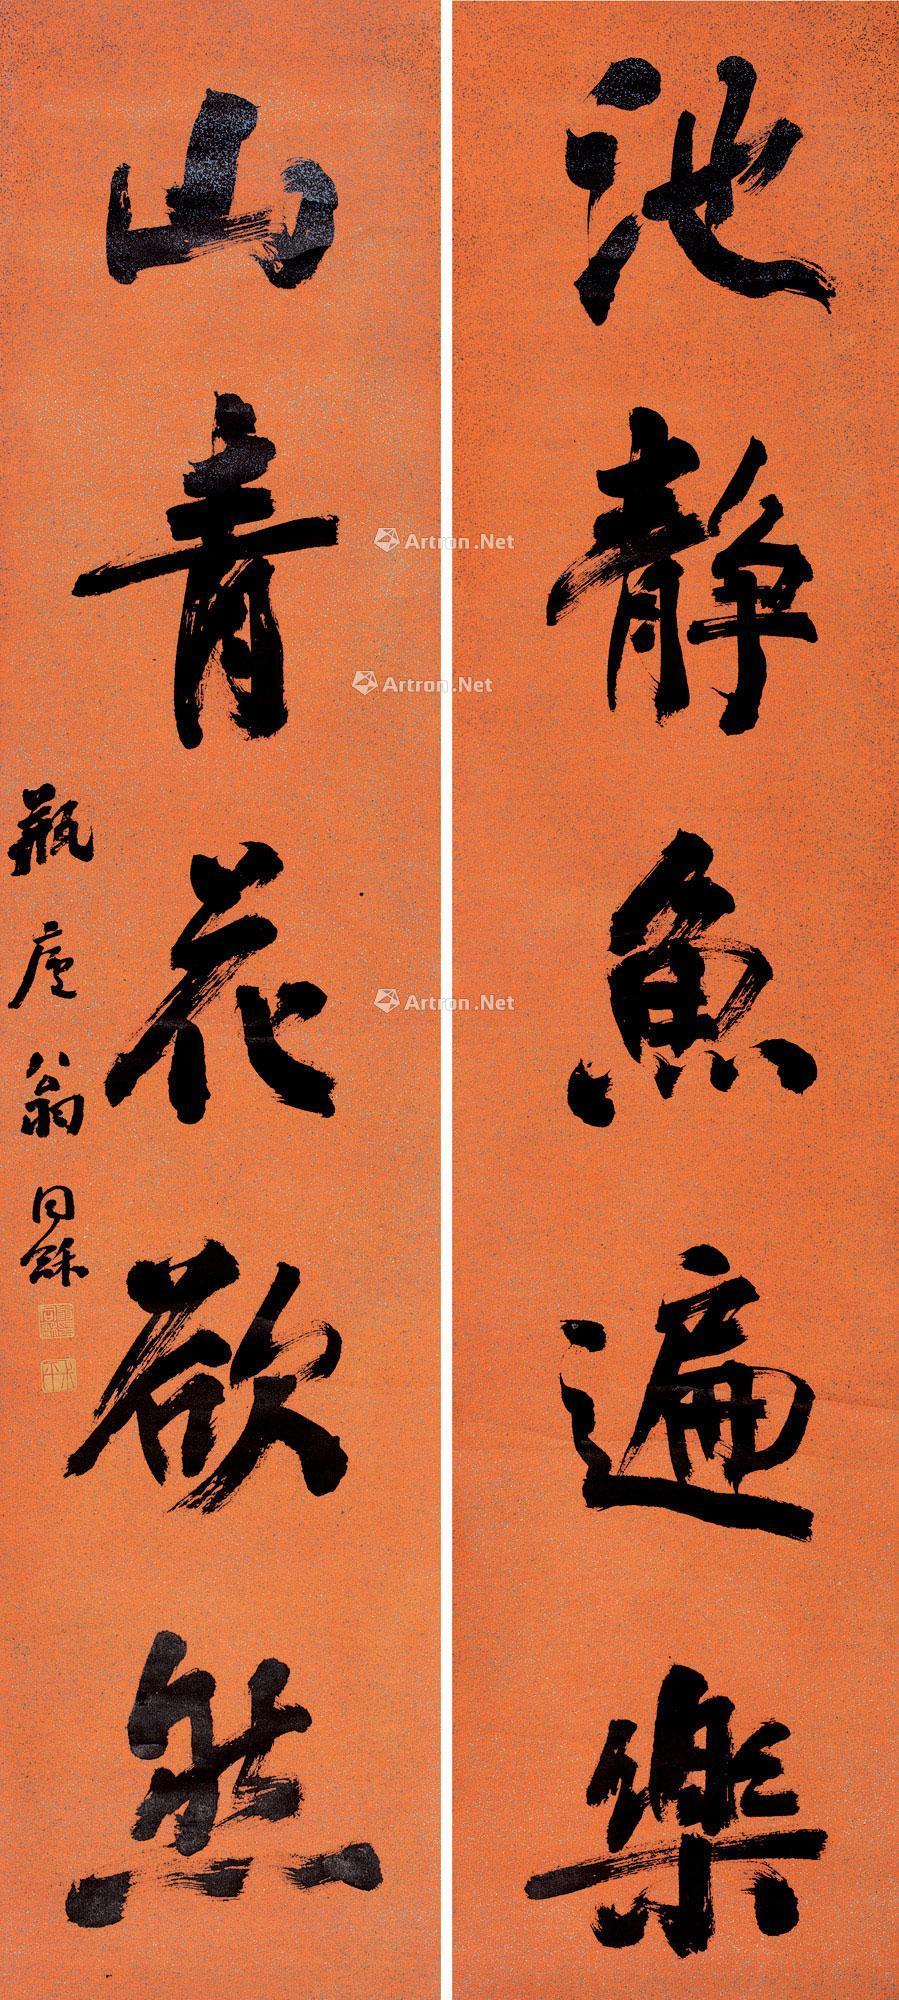 池静魚遍樂
山青花欲然
瓶廬翁同龢
Artron.Net
Artron.Net
Artron.Net